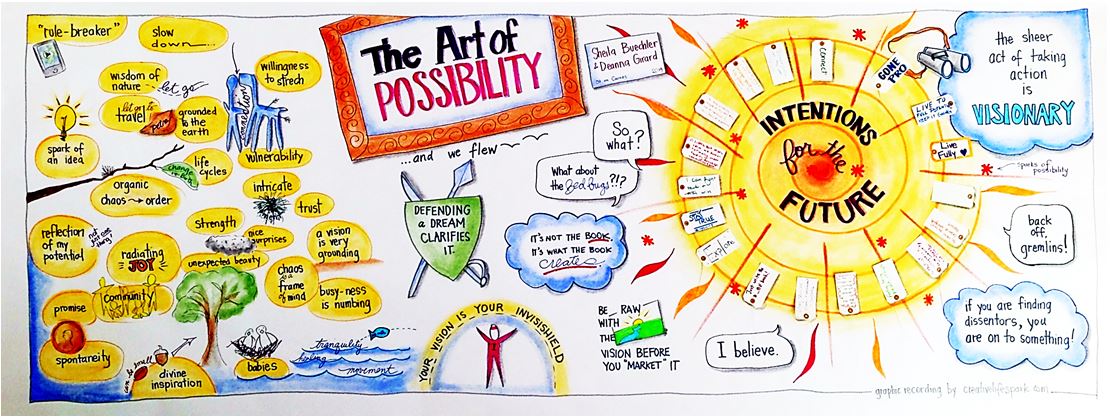 "rule-breaker"
slow
down...
wisdom of
nature
let go
willingness
to strech
connection
let go to
travel
grounded
to the
earth
spark of
an idea
vulnerability
change
life
cycles
organic
chaos → order
intricate
trust
strength
nice
surprises
reflection
of my
potential
radiating
JOY
unexpected beauty
a vision
is very
grounding
community
chaos
frame
of mind
busy-ness
is numbing
promise
spontaneity
divine
inspiration
babies
tranquility
healing
movement
The Art of
POSSIBILITY
Sheila Buechler
& Deanna Girard
...and we flew
DEFENDING
A DREAM
CLARIFIES
IT.
So,
what?
What about
the Bed bugs?!?
IT'S NOT THE BOOK,
IT'S WHAT THE BOOK
Creates.
YOUR VISION IS YOUR INVISISHIELD
BE RAW
WITH
THE
VISION BEFORE
YOU "MARKET" IT
I believe.
INTENTIONS
for the
FUTURE
Connect
GONE
PRO
LIVE TO
Live
Fully
Explore
sparks of
possibility
the sheer
act of taking
action
is
VISIONARY
back
off,
gremlins!
if you are finding
dissentors, you
are on to something!
graphic recording by creativelifespark.com